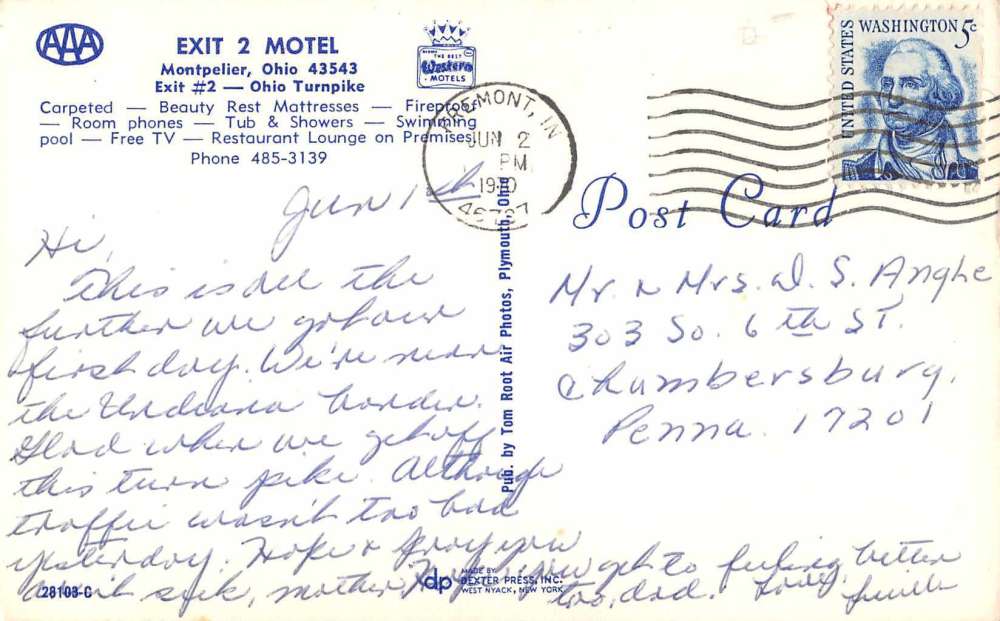 AAA
EXIT 2 MOTEL
Montpelier, Ohio 43543
Exit #2 — Ohio Turnpike
Carpeted — Beauty Rest Mattresses — Fireproof
— Room phones — Tub & Showers — Swimming
pool — Free TV — Restaurant Lounge on Premises
Phone 485-3139
THE BEST
Western
MOTELS
FREMONT, IN
JUN 2
PM
UNITED STATES
WASHINGTON 5c
Post Card
Pub. by Tom Root Air Photos, Plymouth, Ohio
Jun 1st
Hi,
This is all the
further we got our
first day. We're near
the Indiana border.
Glad when we get off
this turn pike. Although
traffic wasn't too bad
yesterday. Hope & pray you
don't get sick, mother. you get to feeling better
too, dad. Love,
Mr. & Mrs. D. S. Angle
303 So. 6th ST.
Chambersburg,
Penna. 17201
28108-C
dp
MADE BY
DEXTER PRESS, INC.
WEST NYACK, NEW YORK